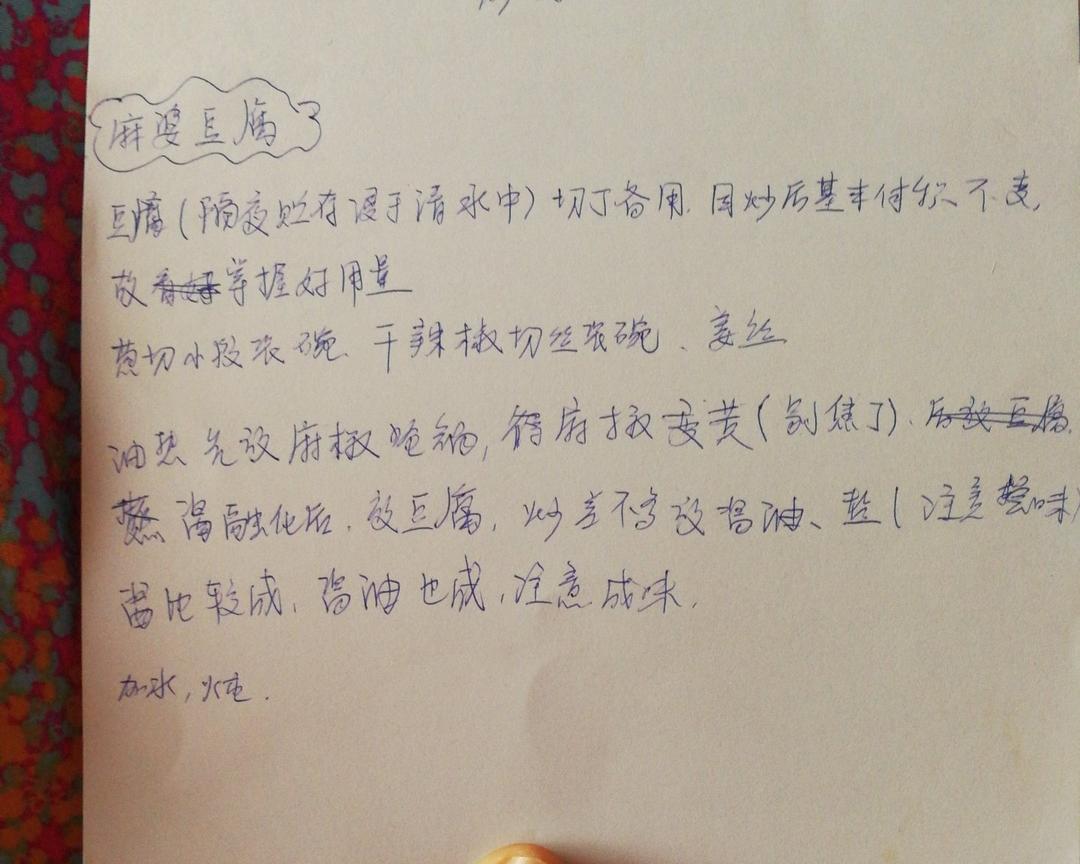 麻婆豆腐
豆腐(隔夜贮存浸于清水中)切丁备用.因炒后基本体积不变,
故掌握好用量
葱切小段装碗、干辣椒切丝装碗、姜丝
油热先放麻椒炝锅,待麻椒变黄(别焦了).后放豆腐.
酱融化后.放豆腐,炒差不多放酱油、盐(注意 味)
酱比较咸,酱油也咸,注意咸味.
加水,炖.